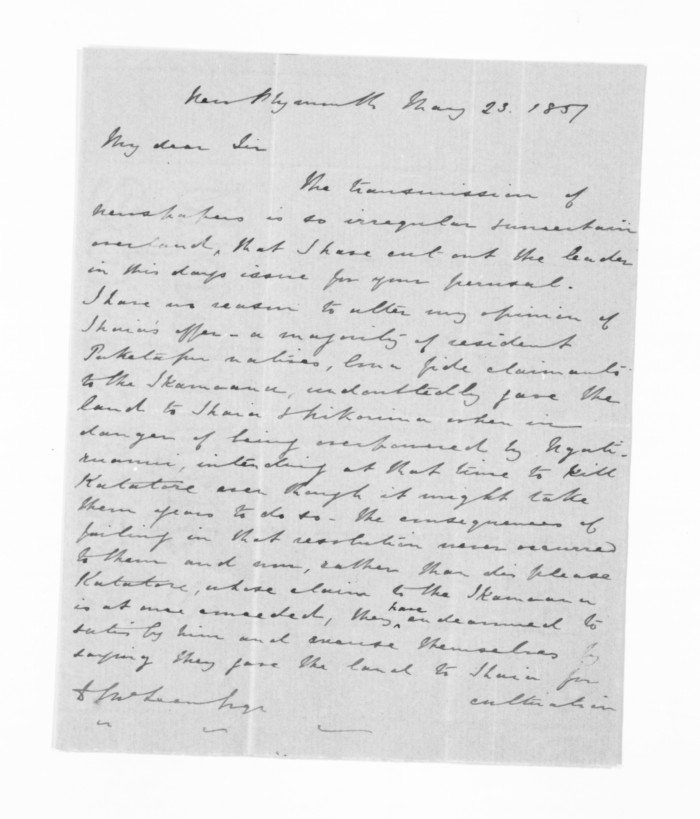 New Plymouth May 23. 1857
My dear Sir
The transmission of
newspapers is so irregular & uncertain
overland, that I have cut out the leader
in this days issue for your perusal.
I have no reason to alter my opinion of
Ihaia's offer - a majority of resident
Puketapu natives, bona fide claimants
to the Ikamoana, undoubtedly gave the
land to Ihaia & when in
danger of being overpowered by Ngati-
ruanui, intending at that time to kill
Katatore even though it might take
them years to do so - the consequences of
failing in that resolution never occurred
to them and now, rather than displease
Katatore, whose claim to the Ikamoana
is at once conceded, they have endeavoured to
satisfy him and excuse themselves by
saying they gave the land to Ihaia for
cultivation
D McLean Esqr